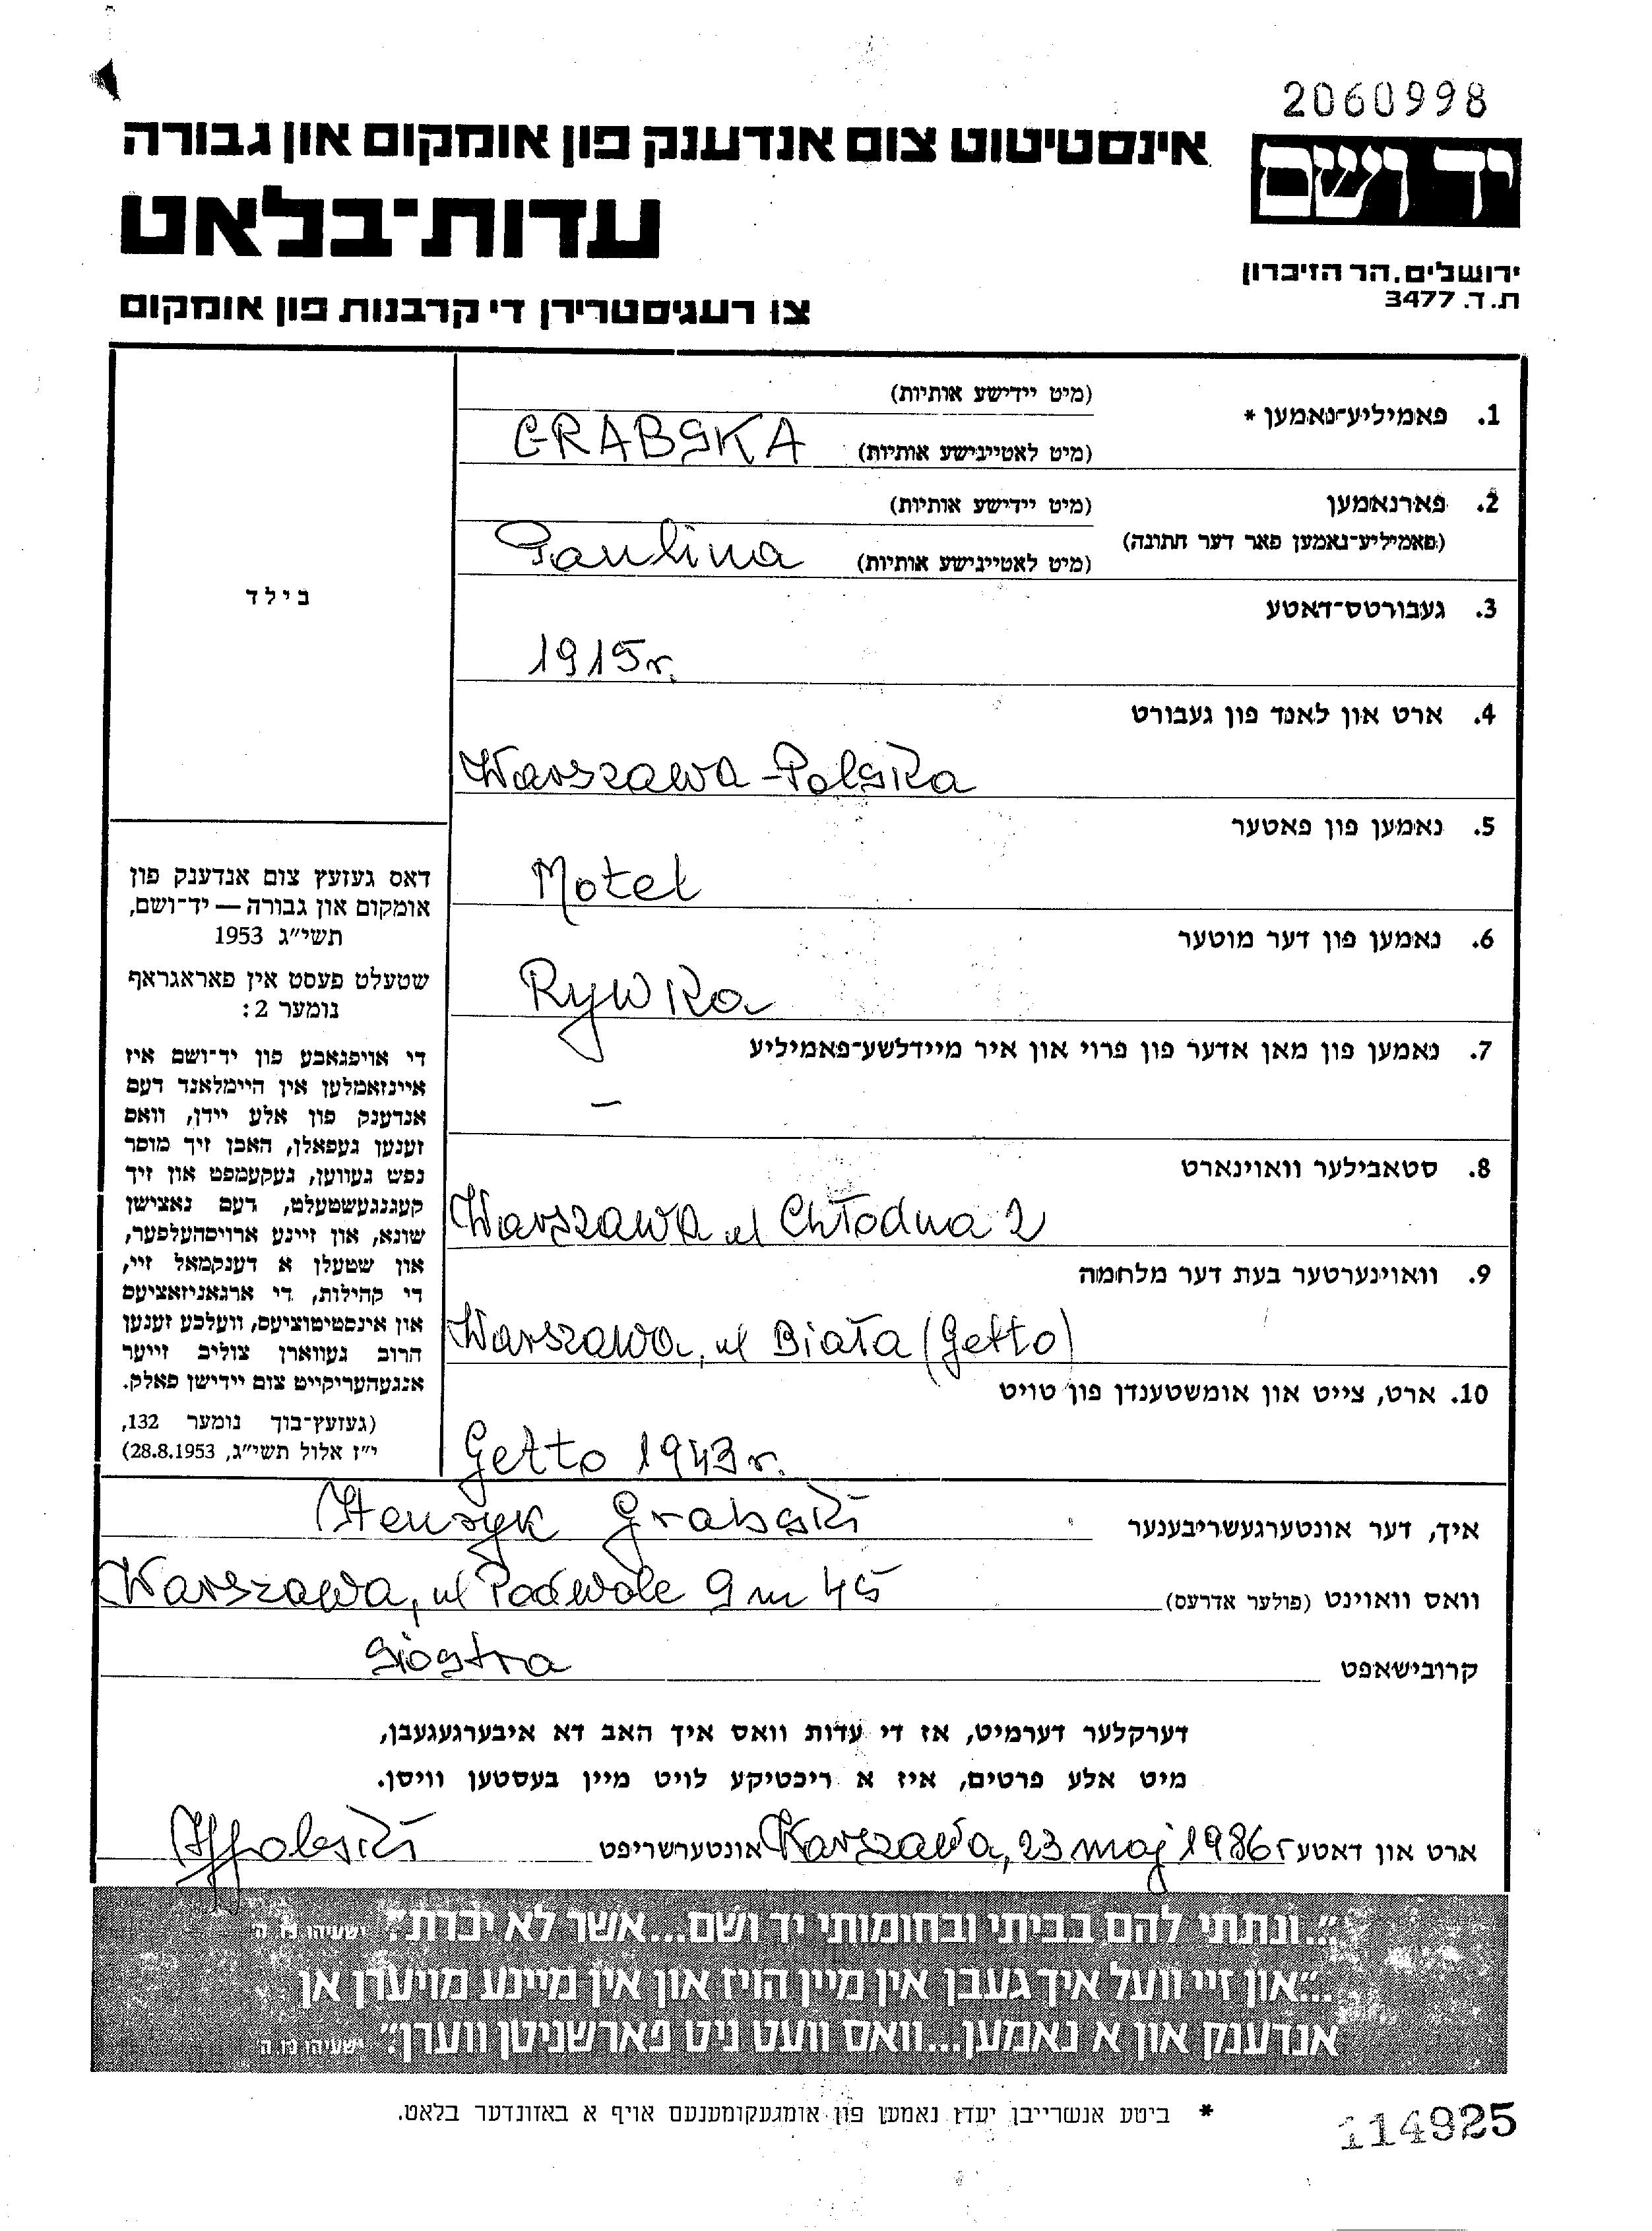 2060998
יד ושם
אינסטיטוט צום אנדענק פון אומקום און גבורה
עדות־בלאט
ירושלים, הר הזיכרון
ת.ד. 3477
צו רעגיסטרירן די קרבנות פון אומקום
1. פאמיליע־נאמען *
(מיט יידישע אותיות)
(מיט לאטיינישע אותיות) GRABSKA
2. פארנאמען
(פאמיליע־נאמען פאר דער חתונה)
(מיט יידישע אותיות)
(מיט לאטיינישע אותיות) Paulina
3. געבורטס־דאטע
1915 r.
4. ארט און לאנד פון געבורט
Warszawa - Polska
5. נאמען פון פאטער
Motel
6. נאמען פון דער מוטער
Rywka
7. נאמען פון מאן אדער פון פרוי און איר מיידלשע־פאמיליע
–
8. סטאבילער וואוינארט
Warszawa ul Chłodna 2
9. וואוינערטער בעת דער מלחמה
Warszawa, ul Biała (Getto)
10. ארט, צייט און אומשטענדן פון טויט
Getto 1943 r.
בילד
דאס געזעץ צום אנדענק פון
אומקום און גבורה — יד־ושם,
תשי״ג 1953
שטעלט פעסט אין פאראגראף
נומער 2:
די אויפגאבע פון יד־ושם איז
איינזאמלען אין היימלאנד דעם
אנדענק פון אלע יידן, וואס
זענען געפאלן, האבן זיך מוסר
נפש געווען, געקעמפט און זיך
קעגנגעשטעלט, דעם נאצישן
שונא, און זיינע ארויסהעלפער,
און שטעלן א דענקמאל זיי,
די קהילות, די ארגאניזאציעס
און אינסטיטוציעס, וועלכע זענען
חרוב געווארן צוליב זייער
אנגעהעריקייט צום יידישן פאלק.
(געזעץ־בוך נומער 132,
י״ז אלול תשי״ג, 28.8.1953)
איך, דער אונטערגעשריבענער Henryk Grabski
וואס וואוינט (פולער אדרעס) Warszawa, ul Podwale 9 m 45
קרובישאפט Siostra
דערקלער דערמיט, אז די עדות וואס איך האב דא איבערגעגעבן,
מיט אלע פרטים, איז א ריכטיקע לויט מיין בעסטען וויסן.
ארט און דאטע Warszawa, 23 maj 1986 r אונטערשריפט HGrabski
״...ונתתי להם בביתי ובחומותי יד ושם...אשר לא יכרת״. ישעיהו נו, ה
״...און זיי וועל איך געבן אין מיין הויז און אין מיינע מויערן אן
אנדענק און א נאמען...וואס וועט ניט פארשניטן ווערן״. ישעיהו נו, ה
* ביטע אנשרייבן יעדן נאמען פון אומגעקומענעם אויף א באזונדער בלאט.
114925